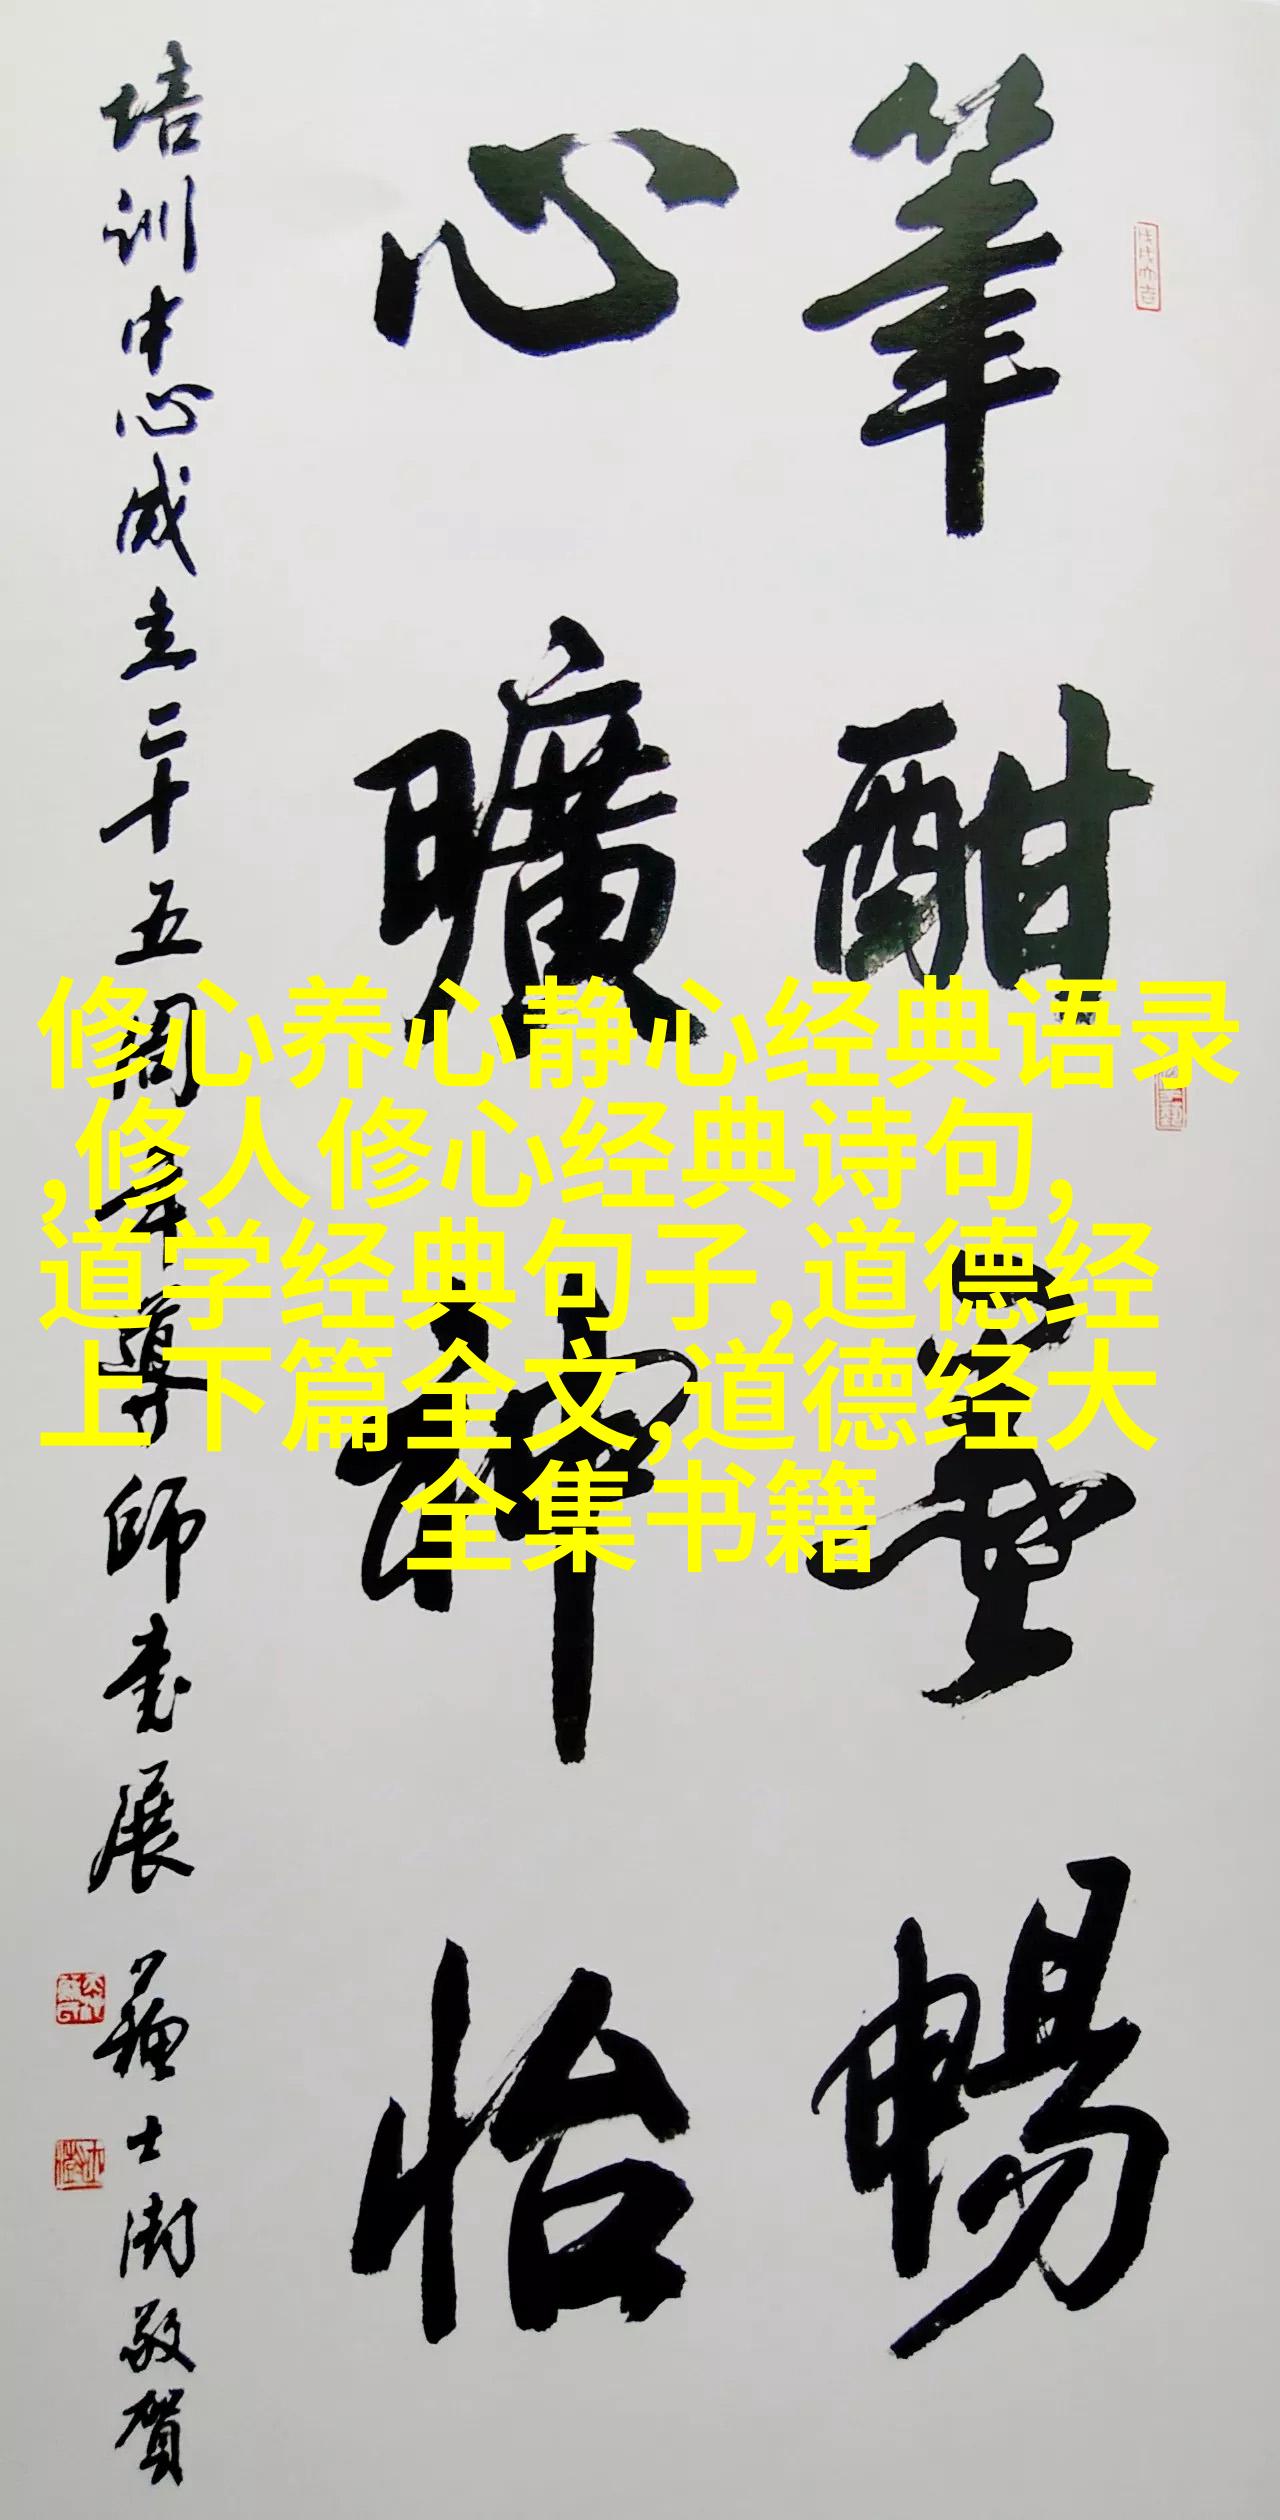 筆酣墨暢
心曠神怡
培训中心成立二十五周年導師書展
蘇士澍敬賀
修心养心静心经典语录
,修人修心经典诗句,
道学经典句子,道德经
上下篇全文,道德经大
全集书籍